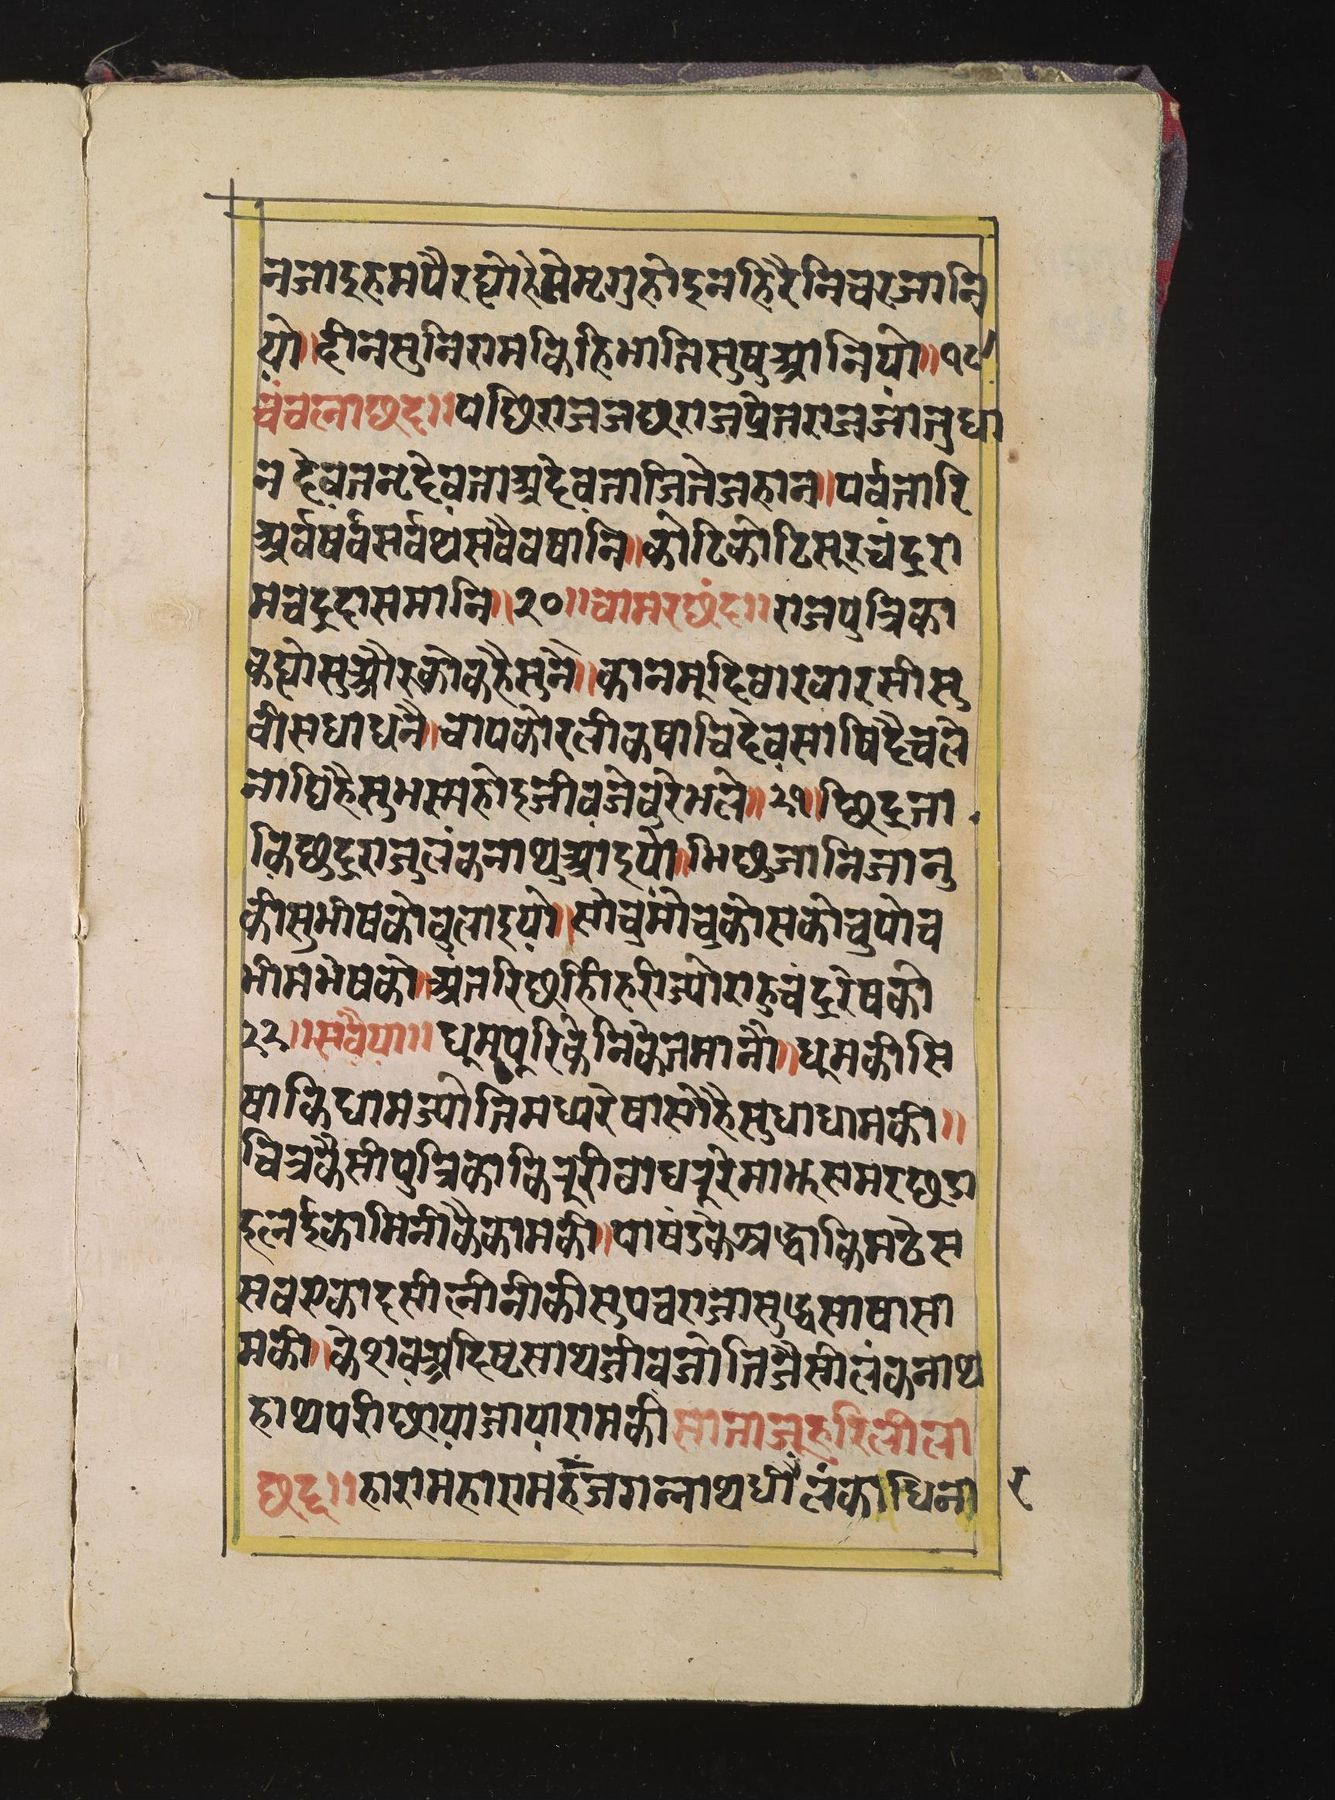 नजाइहमपैरह्योहेमेमृगुहोइनहिरैनिचरजानि
यो॥दीनसुनिरामकिहिभातिसुषुआनियो॥१९॥
चंचलाछंद॥पछिराजजछराजप्रेतराजजांतुधा
न देवतनदेवताअदेवताजितेजहान॥पर्वतारि
अर्वषर्वसर्वथंसर्वैवषानि॥कोटिकोटिसूरचंद्ररा
मचंद्रदासमानि॥२०॥चामरछंद॥राजपुत्रिका
कह्योसुऔरकोकहैसुनै॥कानमूदिबारबारसीसु
वीसधाधुनै॥चापकोरलीकषाचिदेवसाषिदैचले
नाघिहैसुभस्महोइजीवजेबुरेभले॥२१॥छिद्रता
किछुद्रराजुलंकनाथुआइयो॥भिछुजानिजानु
कीसुभीषकोबुलाइयो॥सोचुमोचुकोसकोचुपोच
भीमभेषको॥अंतरिछहीहरीज्योराहुचंद्ररेषको
२२॥सवैया॥धूमपुरिकेनिकेतमानौ॥धूमकीसि
षाकिघामज्योतिमध्यरेषासोहैसुधाधामकी॥
चित्रकैसीपुत्रिकाकिरूरीबाघरूरेमाझसमरछडा
इलईकामिनीकैकामकी॥पाषंडकेश्रद्धाकिमठेस
सबएकादसीलीनीकीसुपचराजासुद्धसाषासा
मकी॥केशवअदिष्टसाथजीवजोतिजैसीलंकनाथ
हाथपरीछायाजायारामकी सीताजूहरिलीला
छंद॥हारामहारामहंजगन्नाथधीलंकाधिना